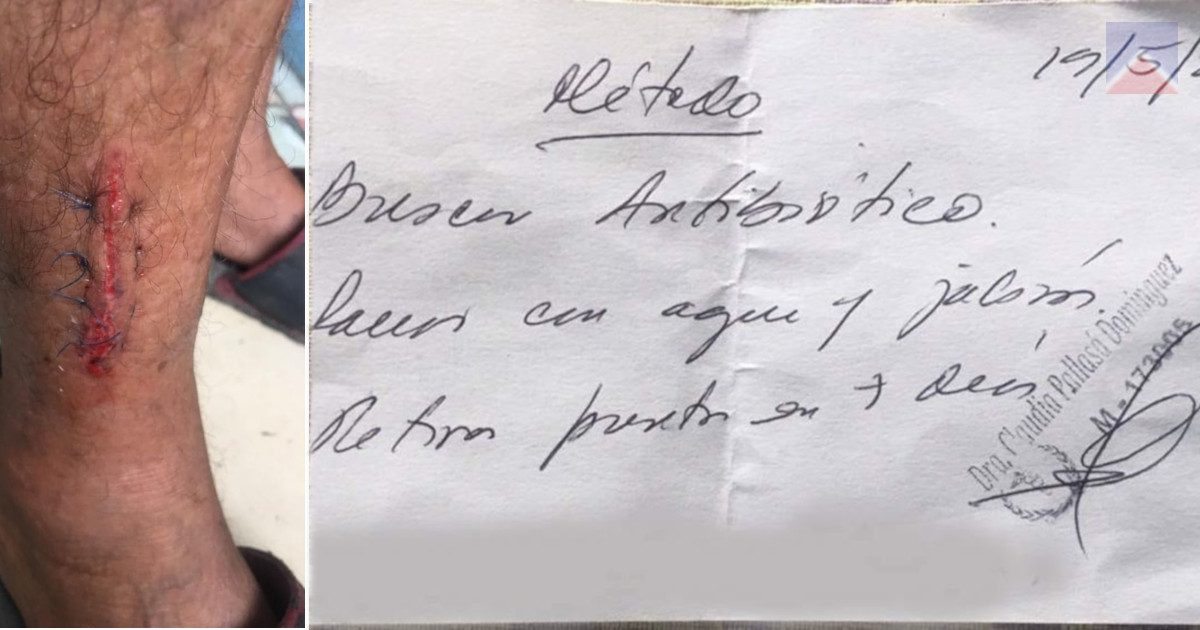 Método
19/5/2
Buscar Antibiótico.
Lavar con agua y jabón.
Retirar puntos en 7 días
Dra. Claudia Pallasá Dominguez
M-173005